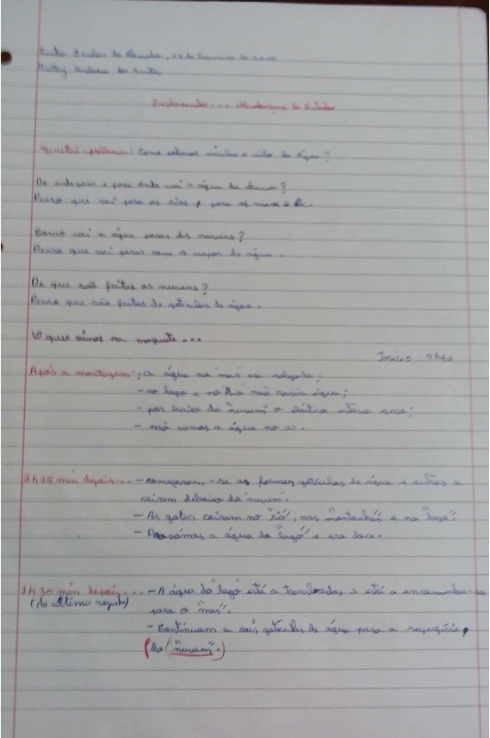 Explorando... Mudanças de Estado
Questão-problema: Como podemos simular o ciclo da água?
De onde vem e para onde vai a água da chuva?
Penso que vai para os rios, para os mares e etc.
Como vai a água para as nuvens?
Penso que vai para com o vapor de água.
De que são feitas as nuvens?
Penso que são feitas de gotículas de água.
O que vimos na maquete...
Início: 9h40
Após a montagem: a água no "mar" era salgada;
- no lago e no "Rio" não havia água;
- por baixo da "nuvem" o plástico estava seco;
- não vimos a água no ar.
2h35 min depois... - começaram-se as formar gotículas de água e outras a
caírem debaixo da "nuvem".
- As gotas caíram no "rio", nas "montanhas" e no "lago".
- Provámos a água do "lago" e era doce.
1h30 min depois... - A água do "lago" está a transbordar e está a encaminhar-se
(do último registo) para o "mar".
- Continuam a cair gotículas de água para a superfície,
da "nuvem".